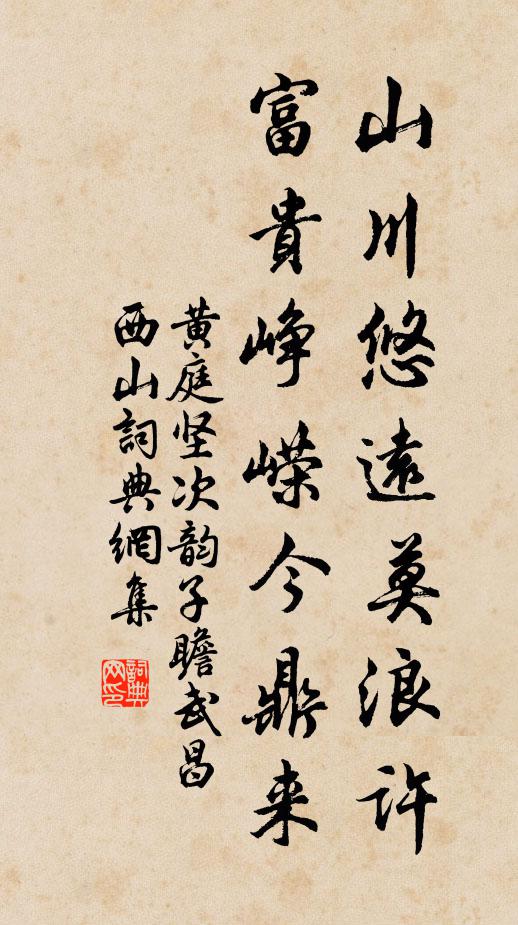 山川悠遠莫浪許
富貴崢嶸今鼎来
黄庭坚次韵子瞻武昌
西山詞典網集
詞典网印